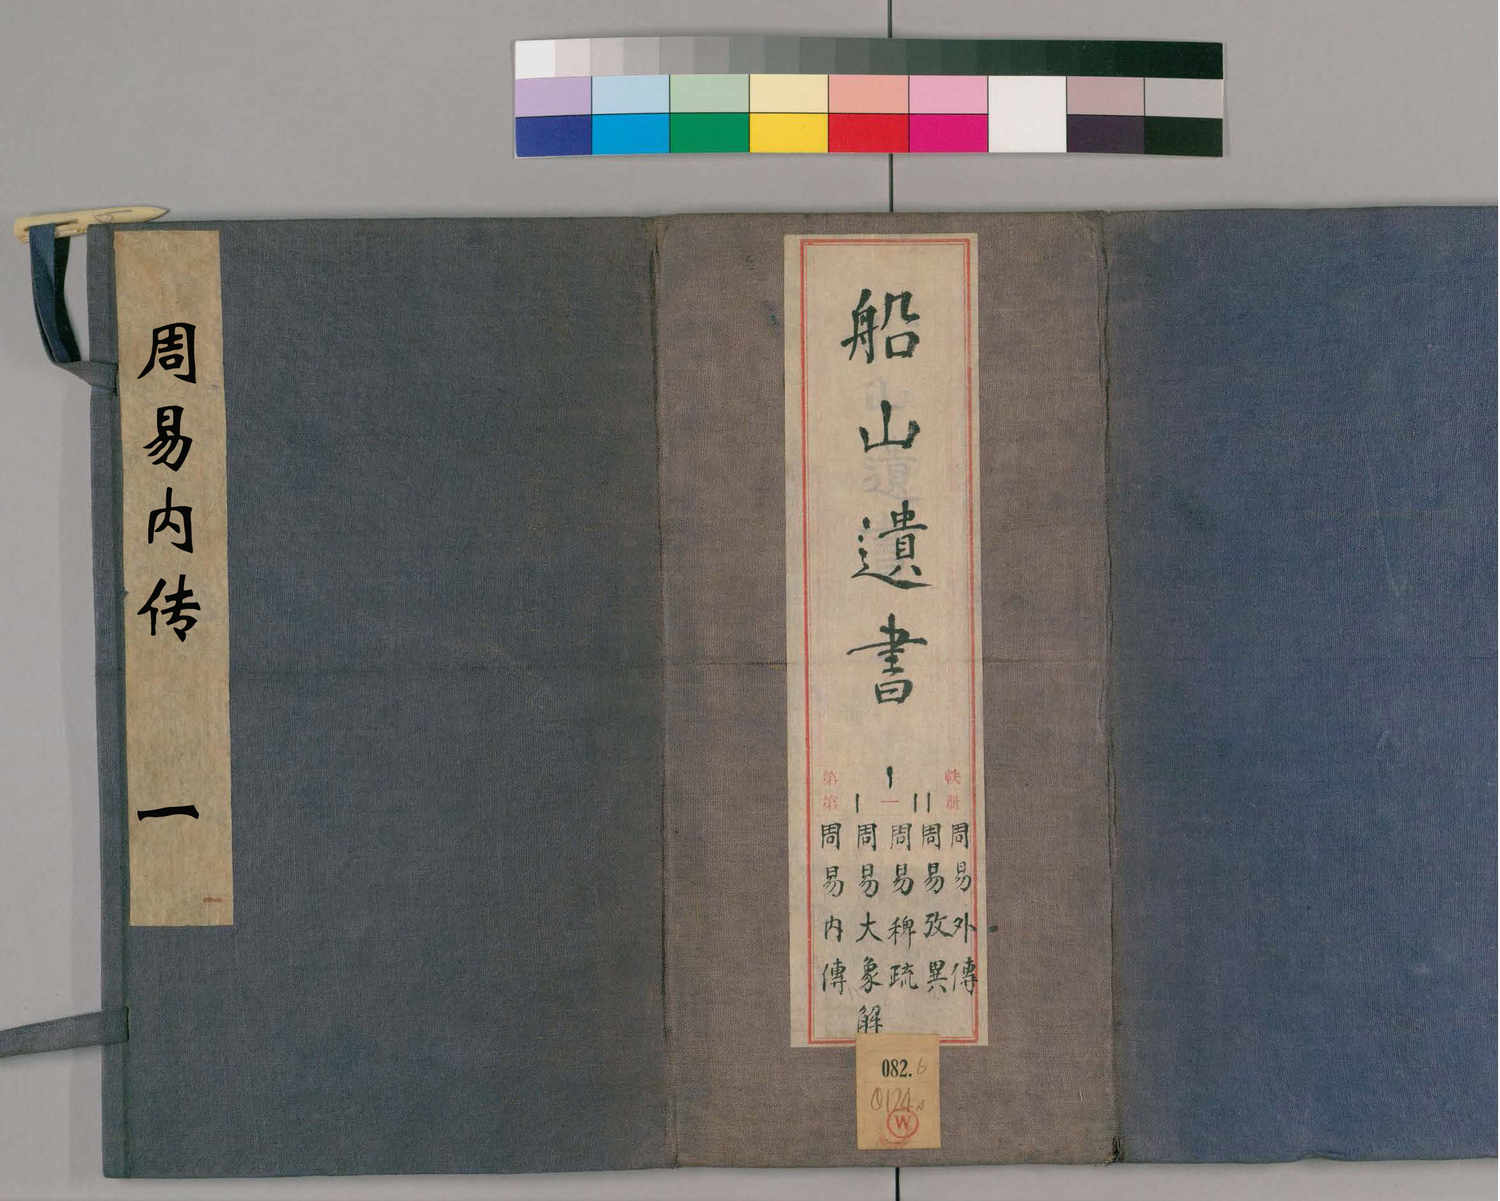 周易内传
一
船山遺書
帙
册
一
第
第
周易外傳
周易攷異
周易稗疏
周易大象解
周易内傳
082.6
W